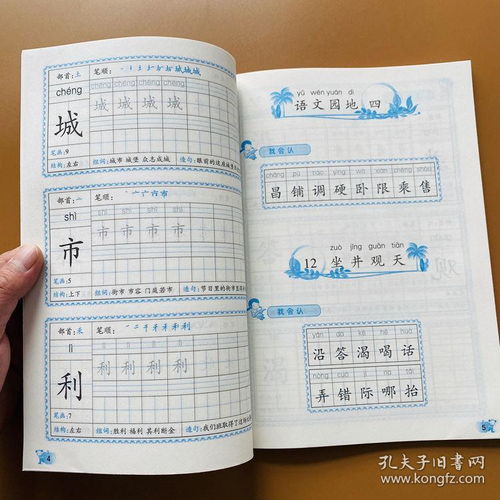 部首:土 笔顺:
chéng chéng chéng chéng chéng
城 城 城 城 城
笔画:9
结构:左右 组词:城市 城堡 众志成城 造句:眼前的这座城
部首: 笔顺:
shì
市 市 市 市 市
笔画:5
结构:上下 组词:街市 市容 门庭若市 造句:节日里的街市
部首:禾 笔顺:
lì
利 利 利 利 利
笔画:7
结构:左右 组词:胜利 福利 其利断金 造句:我们班取得了
4
yǔ wén yuán dì
语文园地 四
我会认
chāng pù tiáo yìng wò xiàn chéng shòu
昌 铺 调 硬 卧 限 乘 售
zuò jǐng guān tiān
12 坐井观天
我会认
yán dá kě hē huà
沿 答 渴 喝 话
nòng cuò jì nǎ
弄 错 际 哪 抬
5
孔夫子旧书网
www.kongfz.com